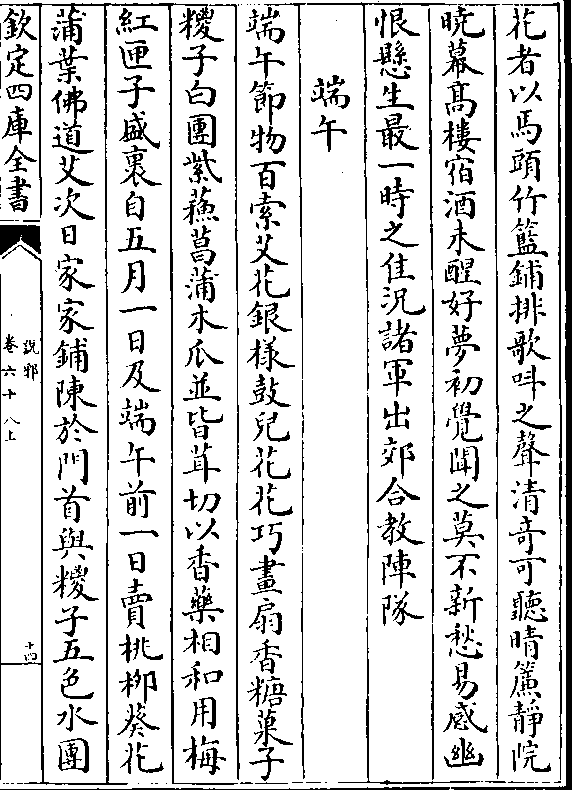 花者以馬頭竹籃鋪排歌呌之聲清竒可聽晴簾靜院
曉幕髙樓宿酒未醒好夢初覺聞之莫不新愁易感幽
恨懸生最一時之佳況諸軍出郊合教陣隊
端午
端午節物百索艾花銀様鼓兒花花巧畫扇香糖菓子
糉子白團紫蘇菖蒲木瓜並皆茸切以香藥相和用梅
紅匣子盛裹自五月一日及端午前一日賣桃栁葵花
蒲葉佛道艾次日家家鋪陳於門首與糉子五色水團
欽定四庫全書
說郛
卷六十八上
十四